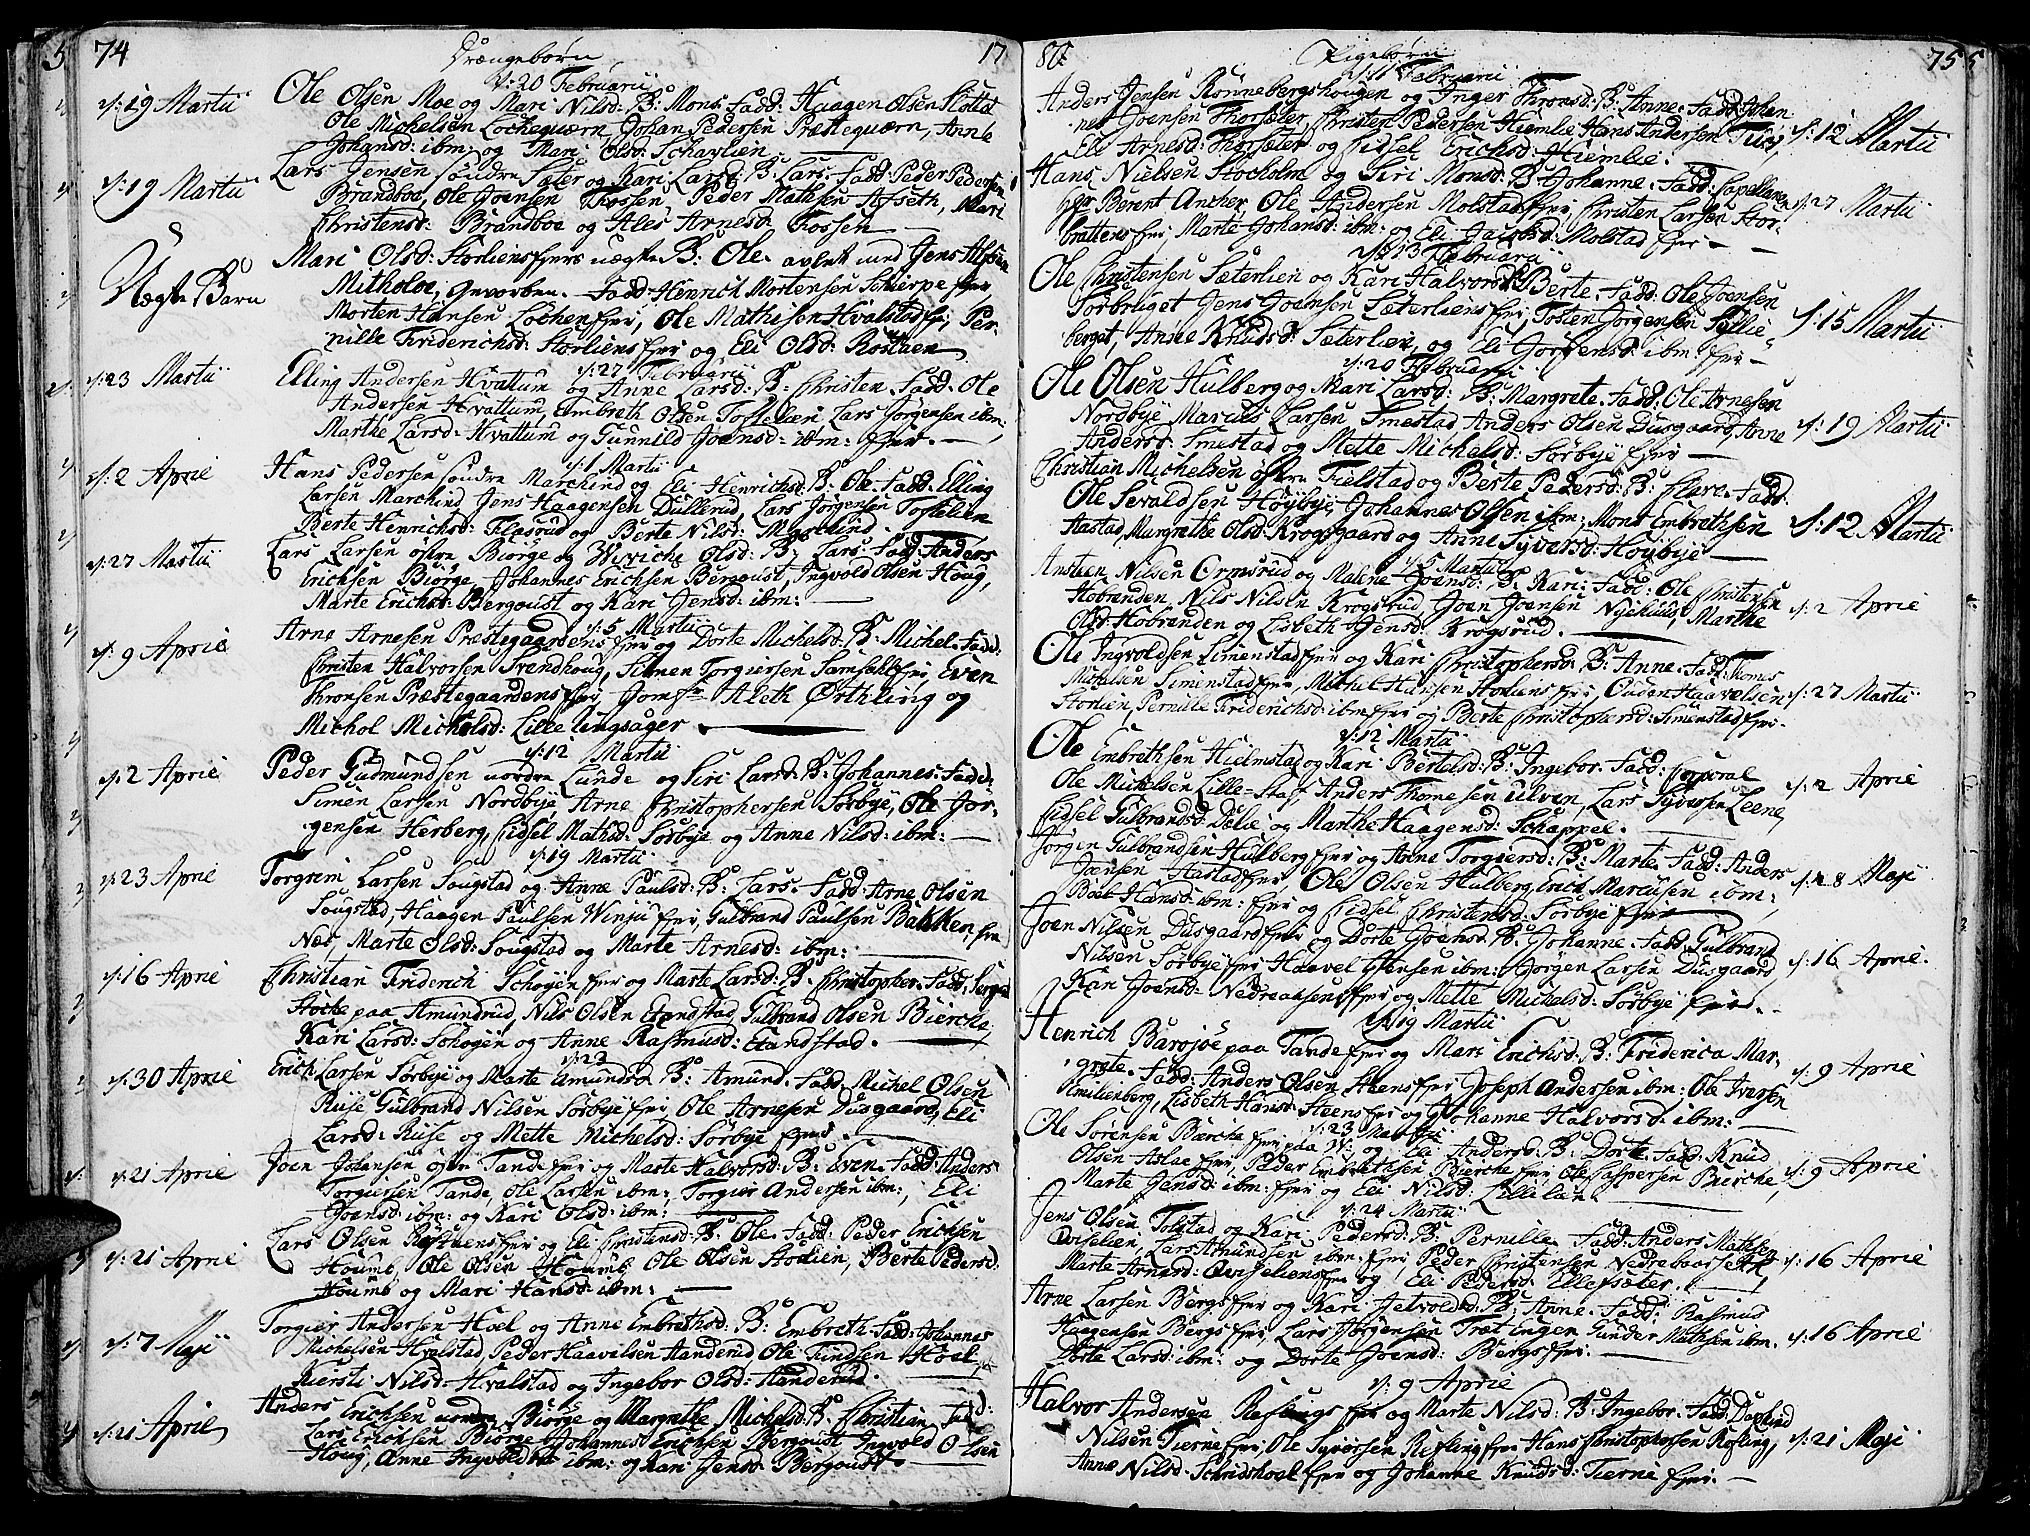 74 Drængebørn 17
d: 20 Februarii
d: 19 Martii
Ole Olsen Moe og Mari Nilsd: B: Mons. Fadd: Haagen Olsen
Ole Michelsen Lochequærn, Johan Pedersen Præstequærn, Anne
Johansd: ibm: og Mari Olsd:
d: 19 Martii
Lars Jensen søndre Sæter og Kari Larsd: B: Lars. Fadd: Peder Pedersen
Brandboe, Ole Joensen Fossen, Peder Mathsen Afseth, Mari
Christensd: Brandboe og Ales Arnesd: Fossen
Uægte Barn
Mari Olsd: Storliens Eyer uægte B: Ole. avlet med Jens
Mitholoe, Gevorben. Fadd: Henrich Mortensen Schierpe Eyer
Morten Hansen Lochen Eyer, Ole Mathisen Hvalstad Eyer, Per-
nille Friderichsd: Storliens Eyer og Eli Olsd: Røstuen
d: 27 Februarii
d: 23 Martii
Elling Andersen Hvattum og Anne Larsd: B: Christen. Fadd: Ole
Andersen Hvattum, Embreth Olsen TosteLien Lars Jørgensen ibm:
Marthe Larsd: Hvattum og Gunnild Joensd: ibm: Eyer.
d: 1 Martii
d: 2 April
Hans Pedersen søndre Marchind og Eli Henrichsd: B: Ole. Fadd: Elling
Larsen Marchind, Jens Haagensen Dullerud, Lars Jørgensen Tostelien
Berte Henrichsd: Flasrud og Berte Nilsd: Marchind
d: 27 Martii
Lars Larsen østre Biørge og Wiviche Olsd: B: Lars. Fadd: Anders
Erichsen Biørge, Johannes Erichsen Bergoust, Ingvold Olsen Houg,
Marte Erichsd: Bergoust og Kari Jensd: ibm:
d: 5 Martii
d: 9 April
Arne Arnesen Præstegaardens Eyer og Dorte Michelsd: B: Michel. Fadd:
Christen Halvorsen Svendhoug, Simen Torgiersen Samsahl Eyer, Even
Thronsen Præstegaardens Eyer, Jomfr Aleth Ørthling og
Michol Michelsd: Lille Lungsager
d: 12 Martii
d: 2 April
Peder Gudmundsen nordre Lunde og Siri Larsd: B: Johannes: Fadd:
Simen Larsen Nordbye, Arne Christophersen Sørbye, Ole Jør-
gensen Herberg, Eidsel Mathisd: Sørbye og Anne Nilsd: ibm:
d: 19 Martii
d: 23 April
Torgrim Larsen Sougstad og Anne Paulsd: B: Lars. Fadd: Arne Olsen
Sougstad, Haagen Paulsen Winju Eyer, Gulbrand Paulsen Bakken, fra
Næs, Marte Olsd: Sougstad og Marte Arnesd: ibm:
d: 16 April
Christian Friderich Schøyen Eyer og Marte Larsd: B: Christopher. Fadd:
Støcke paa Amundrud, Nils Olsen Standstad, Gulbrand Olsen Bierche,
Kari Larsd: Schøyen og Anne Rasmusd: Standstad.
d: 23
d: 30 April
Erich Larsen Sørbye og Marte Amundsd: B: Amund. Fadd: Michel Olsen
Ruse Gulbrand Nilsen Sørbye Eyer, Ole Arnesen Dusgaard, Eli
Larsd: Ruse og Mette Michelsd: Sørbye Eyer.
d: 21 April
Joen Johansen øfre Tande Eyer og Marte Halvorsd: B: Even. Fadd: Anders
Torgiersen Tande, Ole Larsen ibm: Torgier Andersen ibm:, Eli
Joensd: ibm: og Kari Olsd: ibm:
d: 21 April
Lars Olsen Røstuens Eyer og Eli Christensd: B: Ole. Fadd: Peder Erichsen
Houmb, Ole Olsen Houmb, Ole Olsen Storlien, Berte Pedersd:
Houmb og Mari Hansd: ibm:
d: 7 Maji
Torgier Andersen Hoel og Anne Embrethsd: B: Embreth. Fadd: Johannes
Michelsen Hvalstad, Peder Haavelsen Aanderud Ole Findsen Hoel,
Kiersti Nilsd: Hvalstad og Ingebor Olsd: Aanderud.
d: 21 April
Anders Erichsen nordre Biørge og Margrethe Michelsd: B: Christian. Fadd:
Lars Erichsen Biørge Johannes Erichsen Bergoust Ingvold Olsen
Houg, Anne Ingvoldsd: ibm: og Kari Jensd: Bergoust.
87 Pigebørn 75
d: 11 Februarii
Anders Jensen Rønnebergshougen og Inger Thronsd: B: Anne. Fadd: Johan-
nes Joensen Thorsæter, Christen Pedersen Hiemlie Hans Andersen
Eli Arnesd: Thorsæter og Eidsel Erichsd: Hiemlie.
d: 12 Martii
Hans Nielsen Stocholm og Siri Monsd: B: Johanne. Fadd: Capellanen
Hr Berent Ancher, Ole Andersen Molstad Eyer, Christen Larsen Stor-
brattens Eyer, Marte Johansd: ibm: og Eli Jacobsd: Molstad Eyer
d: 27 Martii
d: 13 Februarii
Ole Christensen Sæterlien og Kari Halvorsd: B: Berte. Fadd: Ole Joensen
Sørbruget Jens Joensen Sæterliens Eyer, Tosten Jørgensen Syllie-
berget, Anne Knudsd: Sæterlien, og Eli Jørgensd: ibm: Eyer
d: 15 Martii
d: 20 Februarii
Ole Olsen Hulberg og Mari Larsd: B: Margrete. Fadd: Ole Arnesen
Nordbye Marcus Larsen Smestad Anders Olsen Dusgaard, Anne
Andersd: Smestad og Mette Michelsd: Sørbye Eyer
d: 19 Martii
Christian Michelsen østre Fielstad og Berte Pedersd: B: Clare. Fadd:
Ole Sevaldsen Høybye, Johannes Olsen ibm: Mons Embrethsen
Aastad, Margrethe Olsd: Krogsgaard og Anne Syversd: Høybye
d: 12 Martii
d: 5 Martii
Amsten Nilsen Ormsrud og Malene Joensd: B: Kari: Fadd: Ole Christensen
Hobrenden, Nils Nilsen Krogsrud Joen Joensen Nyehuus, Marthe
Olsd: Hobrenden og Lisbeth Jensd: Krogsrud.
d: 2 April
Ole Ingvoldsen Simenstad Eyer og Kari Christophersd: B: Anne. Fadd: Thomes
Michelsen Simenstad Eyer, Michel Hansen Storliens Eyer, Ouden Haavelsen
Storlien, Pernille Friderichsd: ibm Eyer og Berte Christophersd: Simenstad Eyer.
d: 27 Martii
d: 12 Martii
Ole Embrethsen Hielmstad og Kari Bertelsd: B: Ingebor. Fadd: Corporal
Ole Michelsen Lille-Staf, Anders Thomesen Ulven, Lars Syversen Leene,
Eidsel Gulbrandsd: Dælie og Marthe Haagensd: Schappel.
d: 2 April
Jørgen Gulbrandsen Hulberg Eyer og Anne Torgiersd: B: Marte. Fadd: Anders
Joensen Hastad Eyer, Ole Olsen Hulberg, Erich Marcusen ibm:
Boel Hansd: ibm: Eyer og Eidsel Christensd: Sørbye Eyer
d: 28 Maji
Joen Nilsen Dusgaard Eyer og Dorte Joensd: B: Johanne. Fadd: Gulbrand
Nilsen Sørbye Eyer Haavel Jensen ibm: Jørgen Larsen Dusgaard,
Kari Joensd: Nedreaasens Eyer og Mette Michelsd: Sørbye Eyer.
d: 16 April.
d: 19 Martii
Henrich Barojoe paa Tande Eyer og Mari Erichsd: B: Friderica Mar-
grete. Fadd: Anders Olsen Steens Eyer Joseph Andersen ibm: Ole Iversen
Emilienberg, Lisbeth Hansd: Steens Eyer og Johanne Halvorsd: ibm:
d: 9 April
d: 23 Martii
Ole Sørensen Bierche Eyer og Eli Andersd: B: Dorte. Fadd: Knud
Olsen Aslae Eyer, Peder Embrethsen Bierche Eyer, Ole Caspersen Bierche,
Marte Jensd: ibm: Eyer og Eli Nilsd: Lillelan
d: 9 April
d: 24 Martii
Jens Olsen Tolstad og Kari Pedersd: B: Pernille. Fadd: Anders Mathsen
Qviselien, Lars Amundsen ibm: Eyer, Peder Christensen Nedrebaarseth
Marte Arnesd: Qviseliens Eyer og Eli Pedersd: Ellefsæter.
d: 16 April
Arne Larsen Bergs Eyer og Kari Jetvolsd: B: Anne. Fadd: Rasmus
Haagensen Bergs Eyer, Lars Jørgensen Træt Engen Gunder Mathsen ibm.
Dorte Larsd: ibm: og Dorte Joensd: Bergs Eyer.
d: 16 April
d: 9 April
Halvor Andersen Reflings Eyer og Marte Nilsd: B: Ingebor. Fadd: Daphind
Nilsen Tierne Eyer, Ole Syversen Refling Eyer Hans Christophersen Refling,
Anne Nilsd: Schridshoel Eyer og Johanne Knudsd: Tierne Eyer.
d: 21 Maji